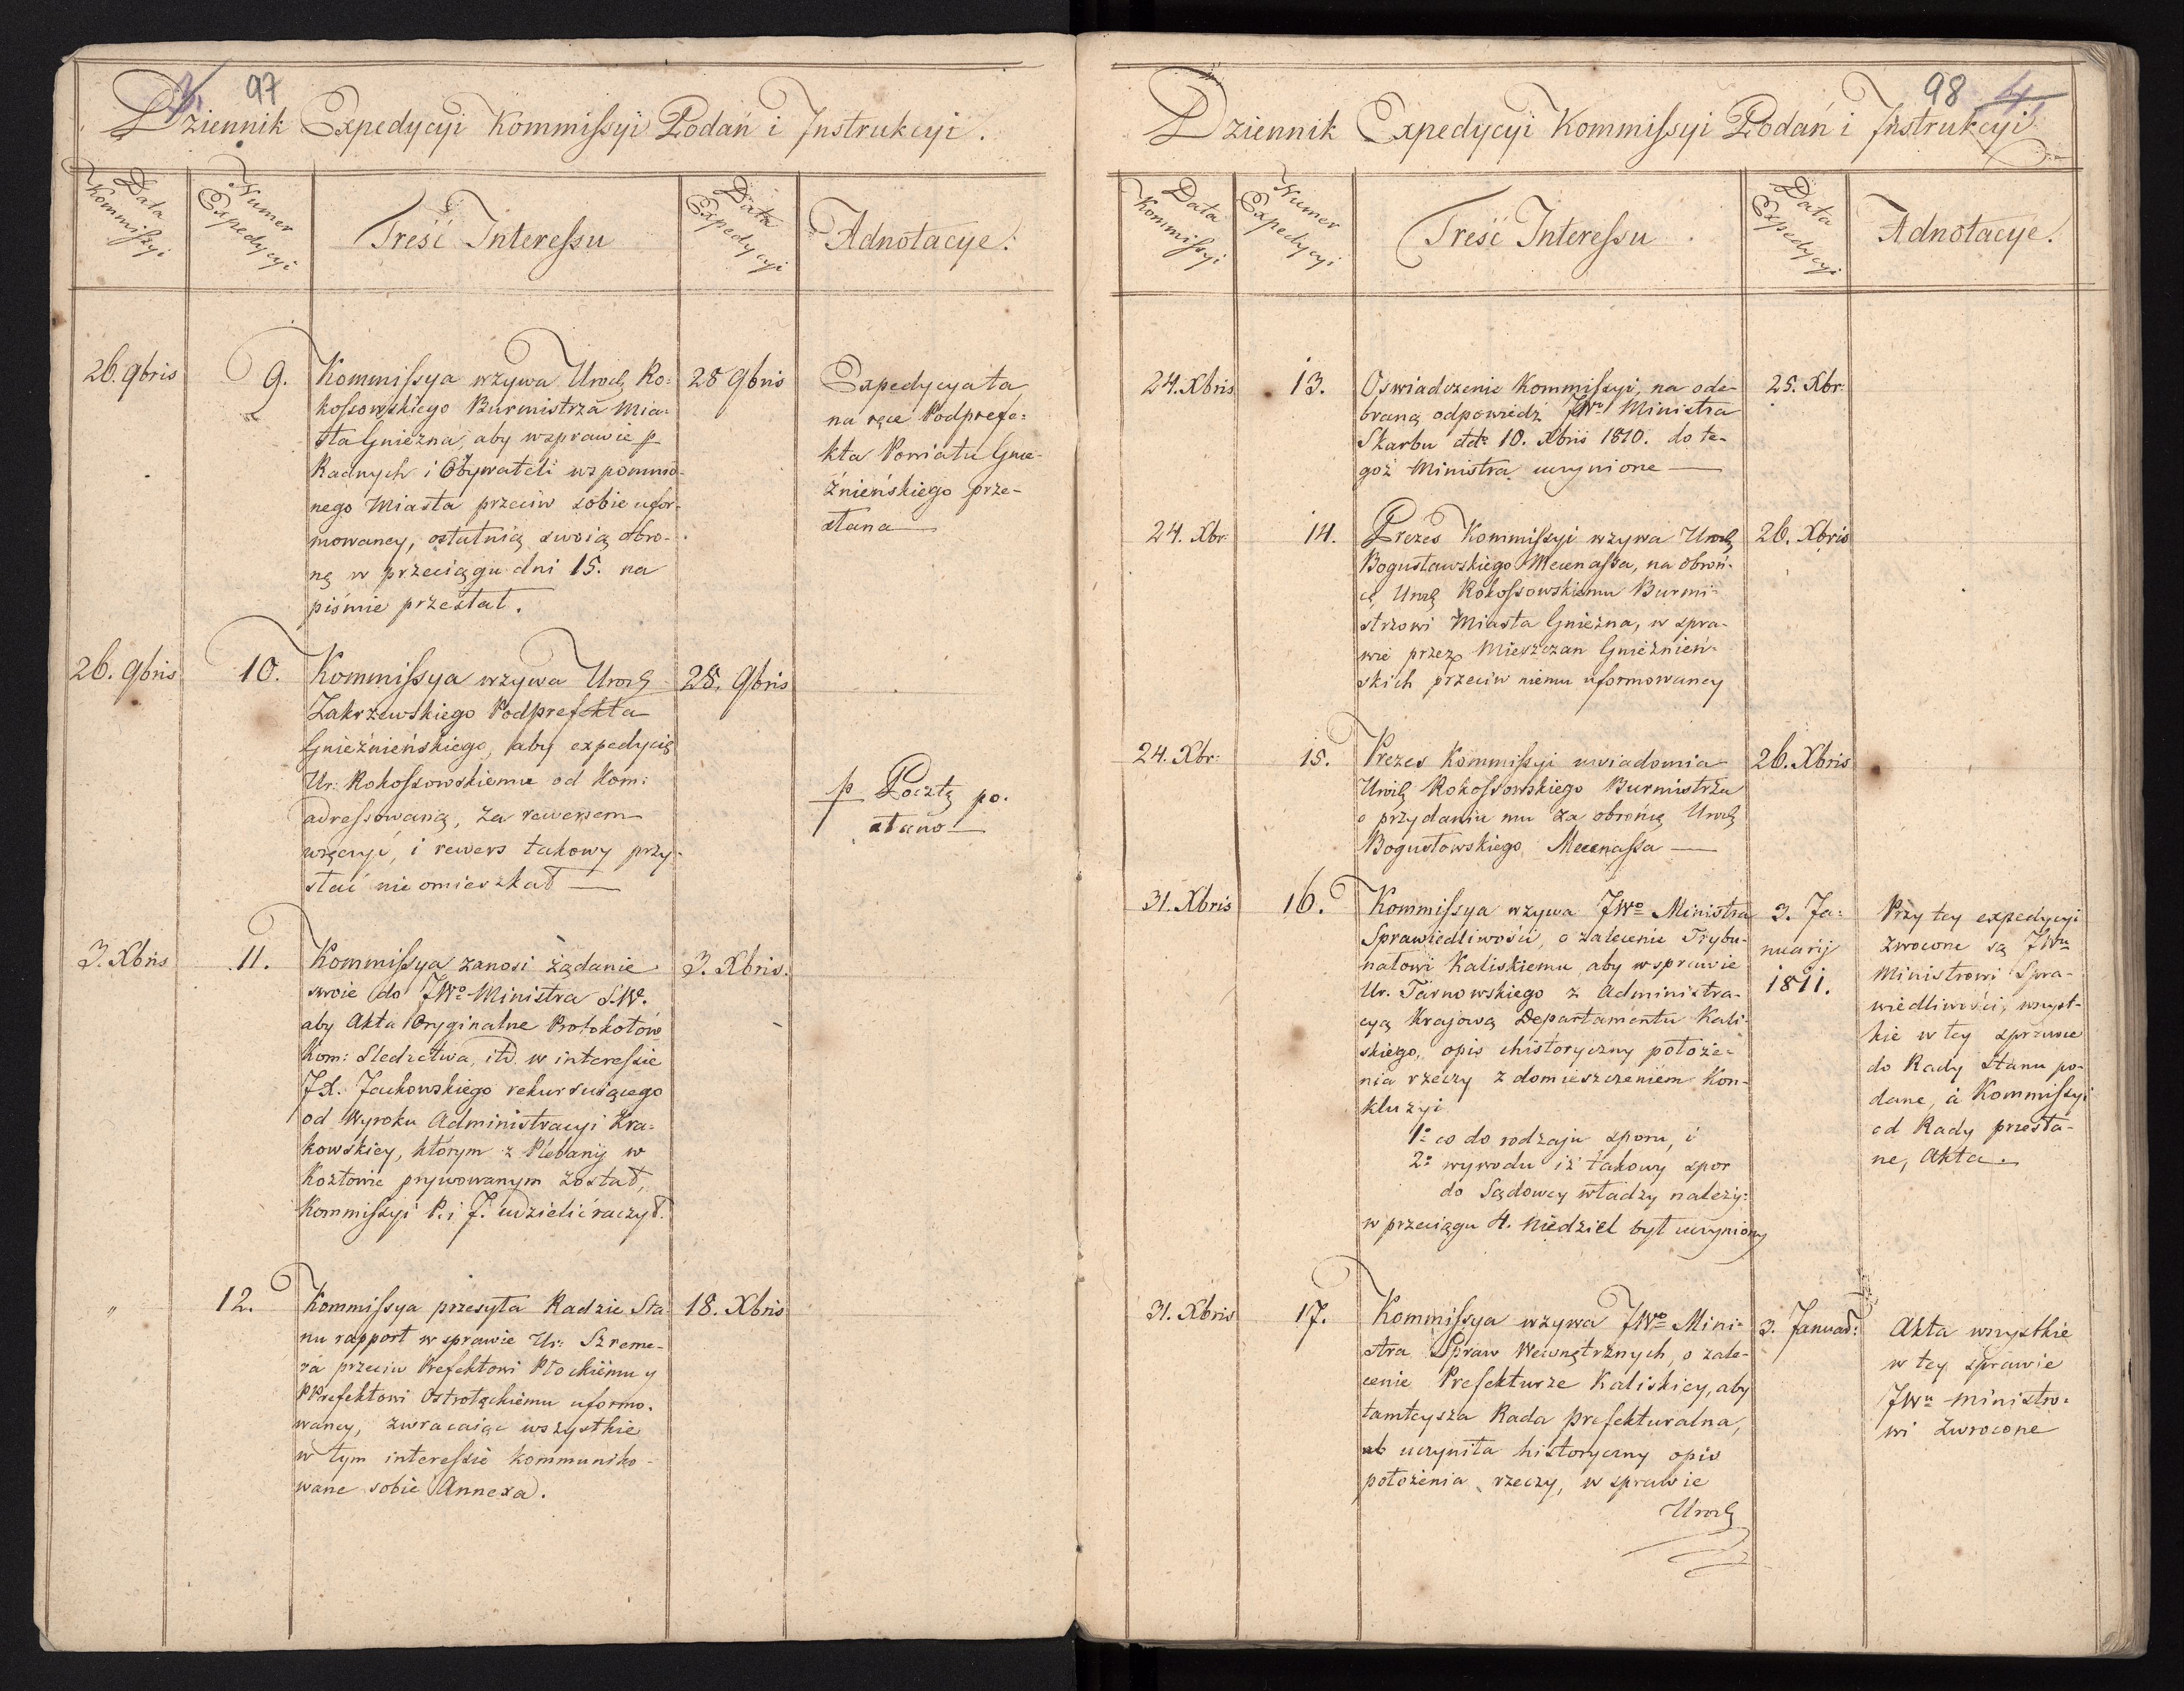 97
Dziennik Expedycyi Kommissyi Podań i Instrukcyi.
Data Kommissyi
Numer Expedycyi
Treść Interessu
Data Expedycyi
Adnotacye.
26. 9bris
9.
Kommissya wzywa Urodz. Ro=
kossowskiego Burmistrza Mia=
sta Gniezna, aby w sprawie p
Radnych i Obywateli wspomnio=
nego Miasta przeciw sobie ufor=
mowaney, ostatnią swoią obro=
nę w przeciągu dni 15. na
piśmie przesłał.
28 9bris
Expedycya ta
na ręce Podprefe=
kta Powiatu Gnie=
źnieńskiego prze=
słana
26. 9bris
10.
Kommissya wzywa Urodz.
Zakrzewskiego Podprefekta
Gnieźnieńskiego, aby expedycią
Ur: Rokossowskiemu od Kom:
adressowaną, za rewersem
wręczyć, i rewers takowy przy=
słać nie omieszkał
28. 9bris
p Pocztę po=
słano
3. Xbris
11.
Kommissya zanosi żądanie
swoie do JWo Ministra S.W.
aby Akta Oryginalne Protokołów
Kom: Sledzctwa, itd. w interessie
JX. Jackowskiego rekursuiącego
od Wyroku Administracyi Kra=
kowskiey, którym z Plebanij w
Kozłowie prywowanym został,
Kommissyi P. i J. udzielić raczył.
3. Xbris.
"
12.
Kommissya przesyła Radzie Sta
nu rapport w sprawie Ur: Szreme=
ra przeciw Prefektowi Płockiemu y
PPrefektowi Ostrołęckiemu uformo=
waney, zwracaiąc wszystkie
w tym interessie kommuniko=
wane sobie Annexa.
18. Xbris
98
Dziennik Expedycyi Kommissyi Podań i Instrukcyi
Data Kommissyi
Numer Expedycyi
Treść Interessu
Data Expedycyi
Adnotacye.
24. Xbris
13.
Oswiadczenie Kommissyi, na ode=
braną odpowiedz JWo Ministra
Skarbu dto 10. Xbris 1810. do te=
goż Ministra uczynione
25. Xbr:
24. Xbr:
14.
Prezes Kommissyi wzywa Urodz.
Bogusławskiego Mecenassa, na obroń=
cę Urodz. Rokossowskiemu Burmi=
strzowi Miasta Gniezna, w spra=
wie przez Mieszczan Gnieźnień=
skich przeciw niemu uformowaney
26. Xbris
24. Xbr:
15.
Prezes Kommissyi uwiadomia
Urodz. Rokossowskiego Burmistrza
o przydaniu mu za obrońcę Urodz.
Bogusłowskiego Mecenassa
26. Xbris
31. Xbris
16.
Kommissya wzywa JWo Ministra
Sprawiedliwości, o zalecenie Trybu=
nałowi Kaliskiemu, aby w sprawie
Ur. Tarnowskiego z Administra=
cyą Krajową Departamentu Kali=
skiego, opis chistoryczny położe=
nia rzeczy z domieszczeniem Kon=
kluzyi
1o co do rodzaju sporu, i
2o wywodu iż takowy spor
do Sądowey władzy należy:
w przeciągu 4. Niedziel był uczyniony
3. Ja=
nuarij
1811.
Przy tey expedycyi
zwrocone są JWu
Ministrowi Spra=
wiedliwości, wszyst=
kie w tey sprawie
do Rady Stanu po=
dane, a Kommissyi
od Rady przesła=
ne, Akta.
31. Xbris
17.
Kommissya wzywa JWo Mini=
stra Spraw Wewnętrznych, o zale=
cenie Prefekturze Kaliskiey, aby
tamteysza Rada prefekturalna,
uczyniła historyczny opis
położenia rzeczy, w sprawie
Urodz.
3. Januar:
Akta wszystkie
w tey sprawie
JWu Ministro=
wi zwrocone